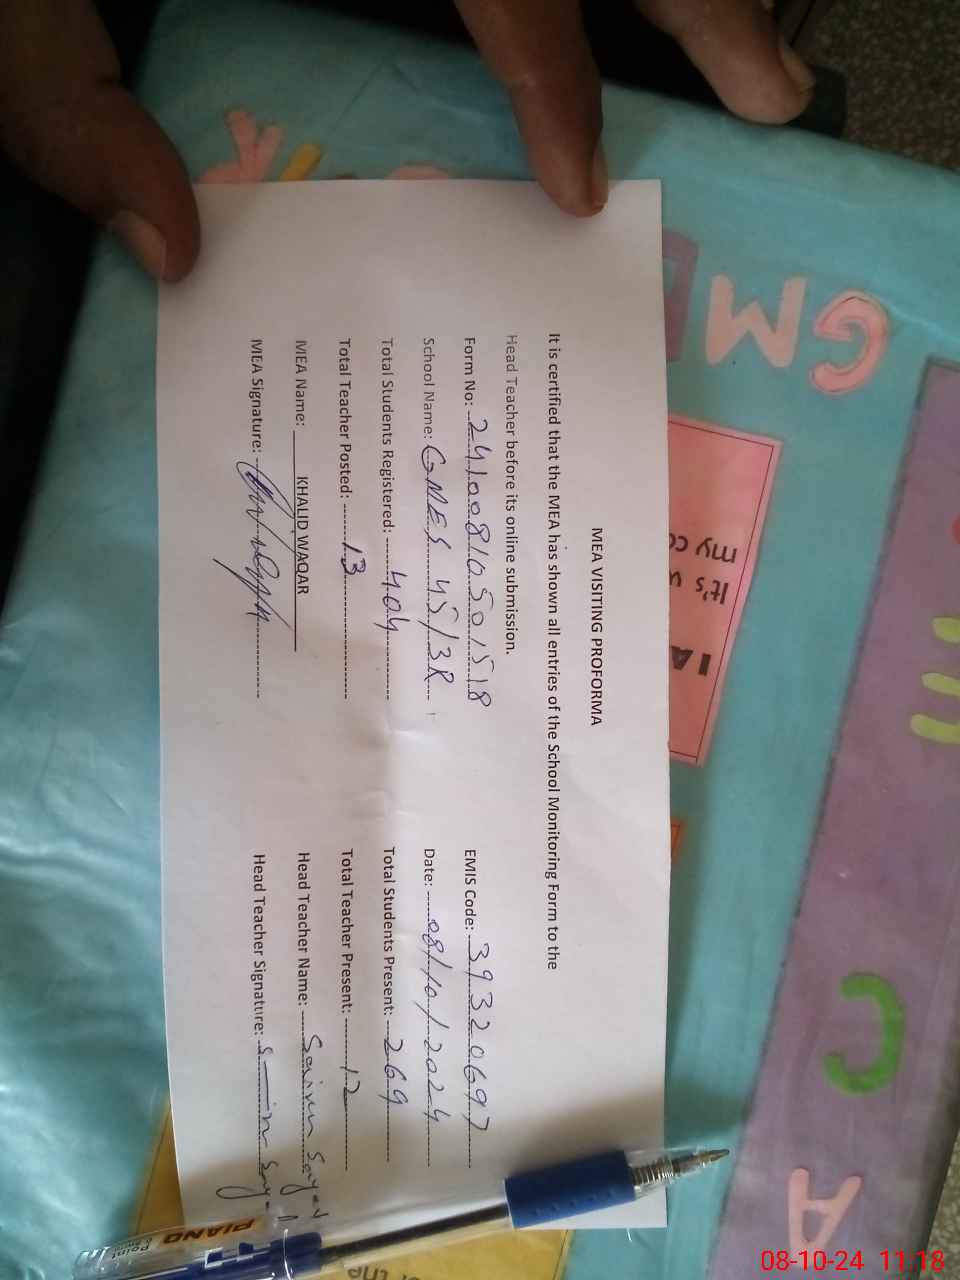 MEA VISITING PROFORMA
It is certified that the MEA has shown all entries of the School Monitoring Form to the
Head Teacher before its online submission.
Form No: 24100810501518 EMIS Code: 39320697
School Name: GMES 45/3R Date: 08/10/2024
Total Students Registered: 404 Total Students Present: 269
Total Teacher Posted: 13 Total Teacher Present: 12
MEA Name: KHALID WAQAR Head Teacher Name:
MEA Signature: Head Teacher Signature:
GM
It's
my
I A
C
A
PIANO
Point
08-10-24 11:18